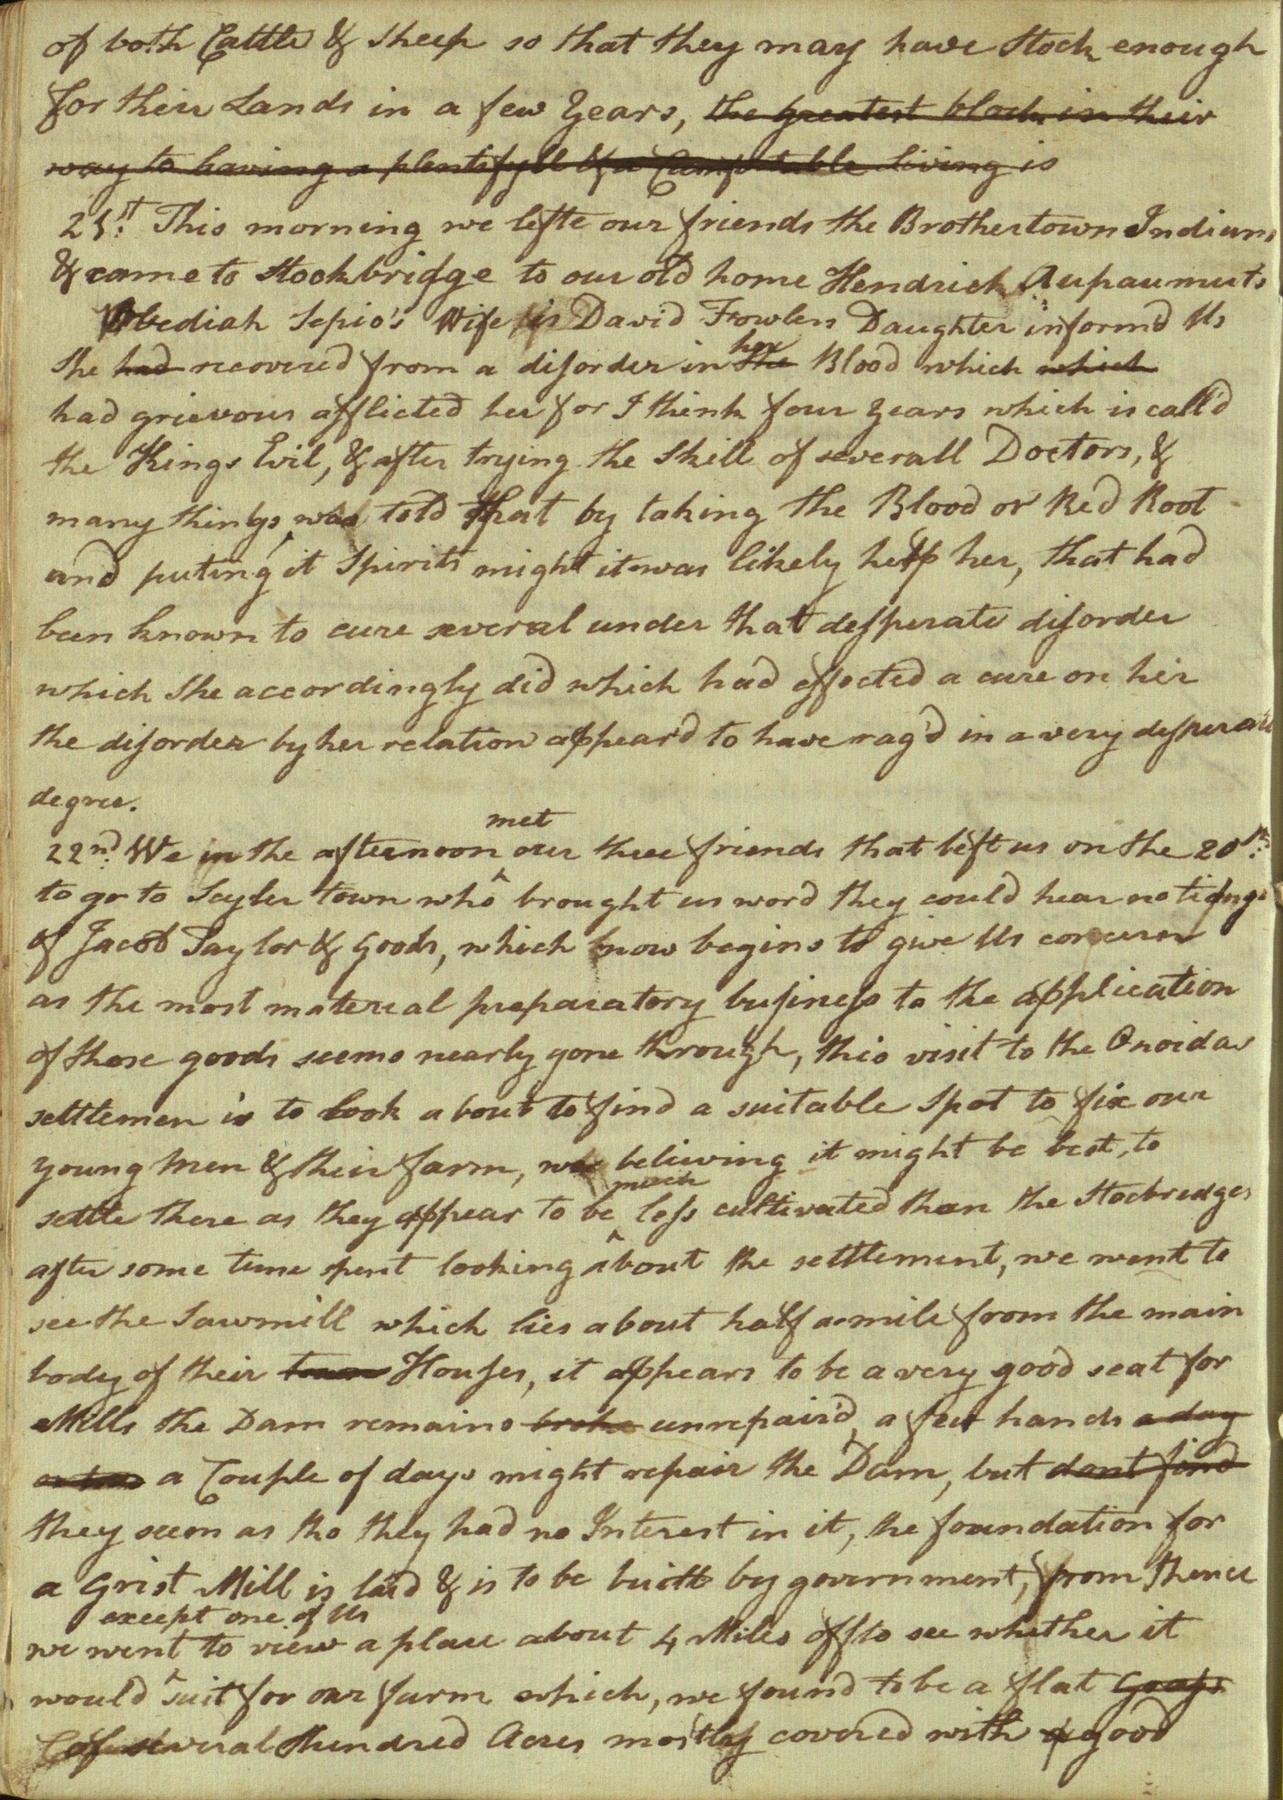 of both Cattle & Sheep so that they may have Stock enough
for their Lands in a few Years, the greatest block in their
way to having a plentifull & a Comfortable living is
21st This morning we lefte our friends the Brothertown Indians
& came to Stockbridge to our old home Hendrick Aupaumuts
Obediah Sepio's Wife is David Fowlers Daughter inform'd Us
She had recovered from a disorder in the her Blood which which
had grievous afflicted her for I think four years which is call'd
the Kings Evil, & after trying the Skill of severall Doctors, &
many things was told that by taking the Blood or Red Root
and puting it Spirits might it was likely help her, that had
been known to cure several under that desperate disorder
which She accordingly did which had effected a cure on her
the disorder by her relation appear'd to have rag'd in a very desperate
degree.
met
22nd We in the afternoon our three friends that left us on the 20th
to go to Scyler town who brought us word they could hear no tidings
of Jacob Taylor & Goods, which now begins to give Us concern
as the most material preparatory business to the application
of those goods seems nearly gone through, this visit to the Onoidas
settlemen is to look about to find a suitable Spot to fix our
young Men & their farm, we believing it might be best, to
much
settle there as they appear to be less cultivated than the Stocbridges
after some time spent looking about the settlement, we went to
see the Sawmill which lies about half a mile from the main
body of their town Houses, it appears to be a very good seat for
Mills the Dam remains broke unrepair'd, a few hands a day
or two a Couple of days might repair the Dam, but dont find
they seem as tho they had no Interest in it, the foundation for
a Grist Mill is laid & is to be built by government, from thence
except one of Us
we went to view a place about 4 Miles off to see whether it
would suit for our farm which, we found to be a flat
of several Hundred Acres mostly covered with good